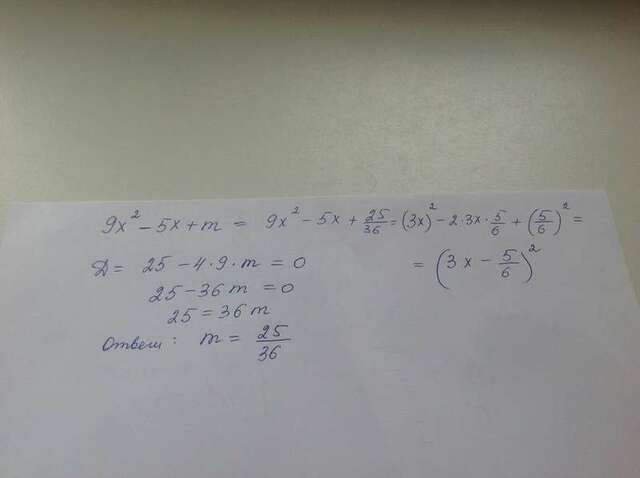 9x² - 5x + m = 9x² - 5x + 25/36 = (3x)² - 2·3x·5/6 + (5/6)² =
= (3x - 5/6)²
D = 25 - 4·9·m = 0
25 - 36m = 0
25 = 36m
Ответ: m = 25/36